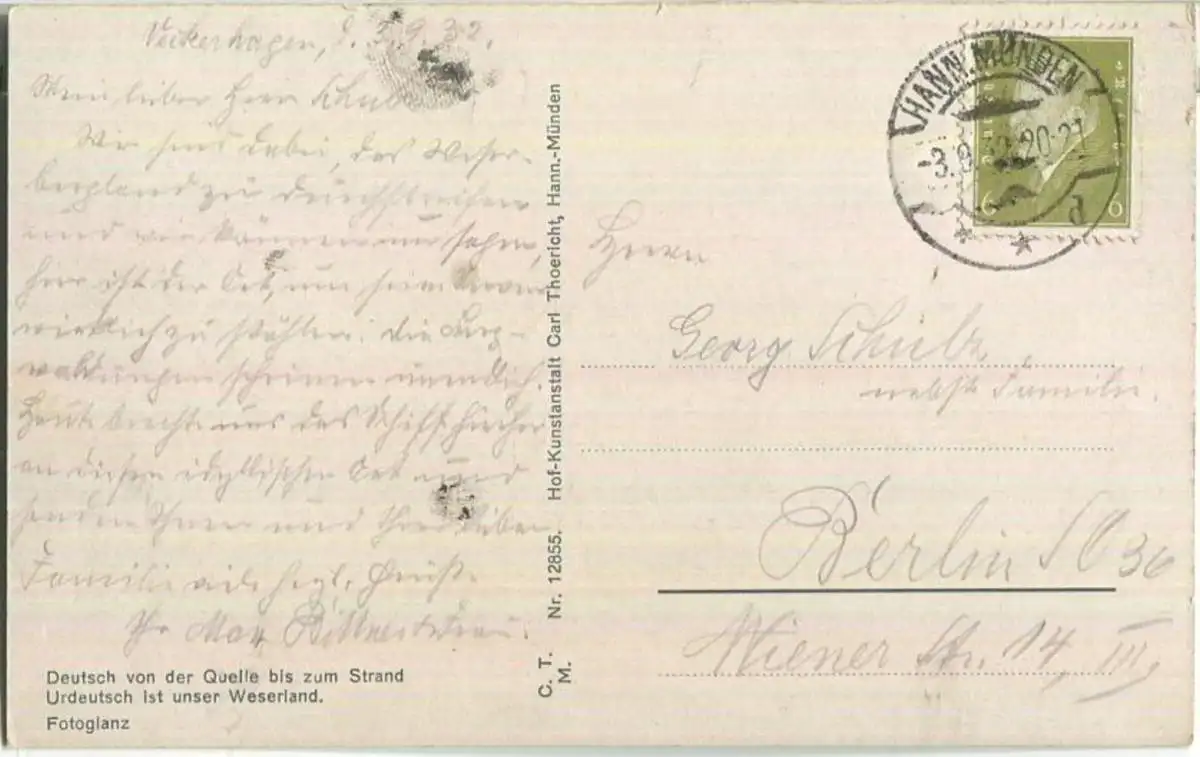 Veckerhagen, d. 3.9.32.
Mein lieber Herr Schulz
Wir sind dabei, das Weser-
bergland zu durchstreifen
und wir können nur sagen,
hier ist der Ort, um seine Nerven
wirklich zu stählen. Die Berg-
waldungen scheinen unendlich.
Heute brachte uns das Schiff hierher
an diesen idyllischen Ort und
senden Ihnen und Ihrer lieben
Familie viele herzl. Grüße.
Ihr Max
Deutsch von der Quelle bis zum Strand
Urdeutsch ist unser Weserland.
Fotoglanz
C. T. M. Nr. 12855. Hof-Kunstanstalt Carl Thoericht, Hann.-Münden
HANN. MÜNDEN
3.9.32.20-21
d
6 6
Herrn
Georg Schulz,
nebst Familie.
Berlin SO 36
Wiener Str. 14, III,